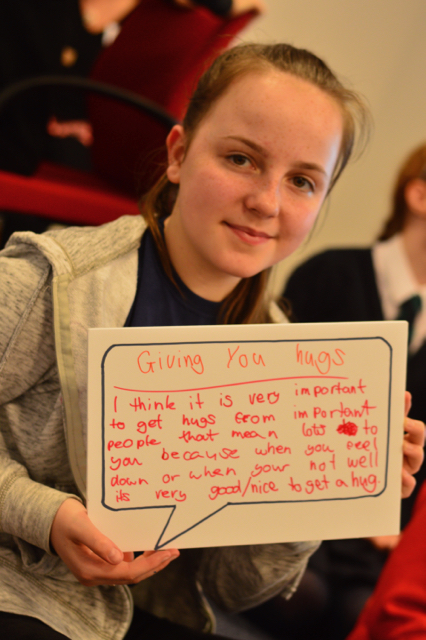 Giving You hugs
I think it is very important
to get hugs from important
people that mean lots to
you because when you feel
down or when your not well
its very good/nice to get a hug.